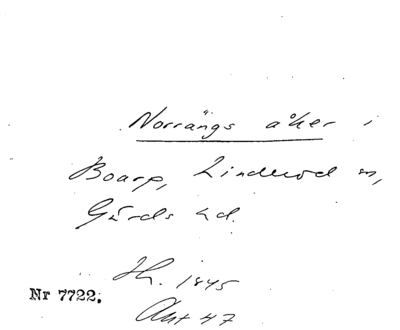 Norrängs åker i
Boarp, Linderöd sn,
Gärds hd.
Ih. 1845
Nr 7722.
Akt 47